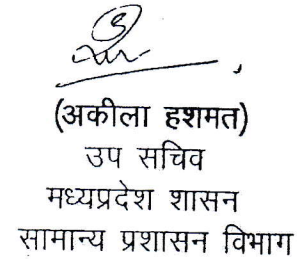 (अकीला हशमत)
उप सचिव
मध्यप्रदेश शासन
सामान्य प्रशासन विभाग